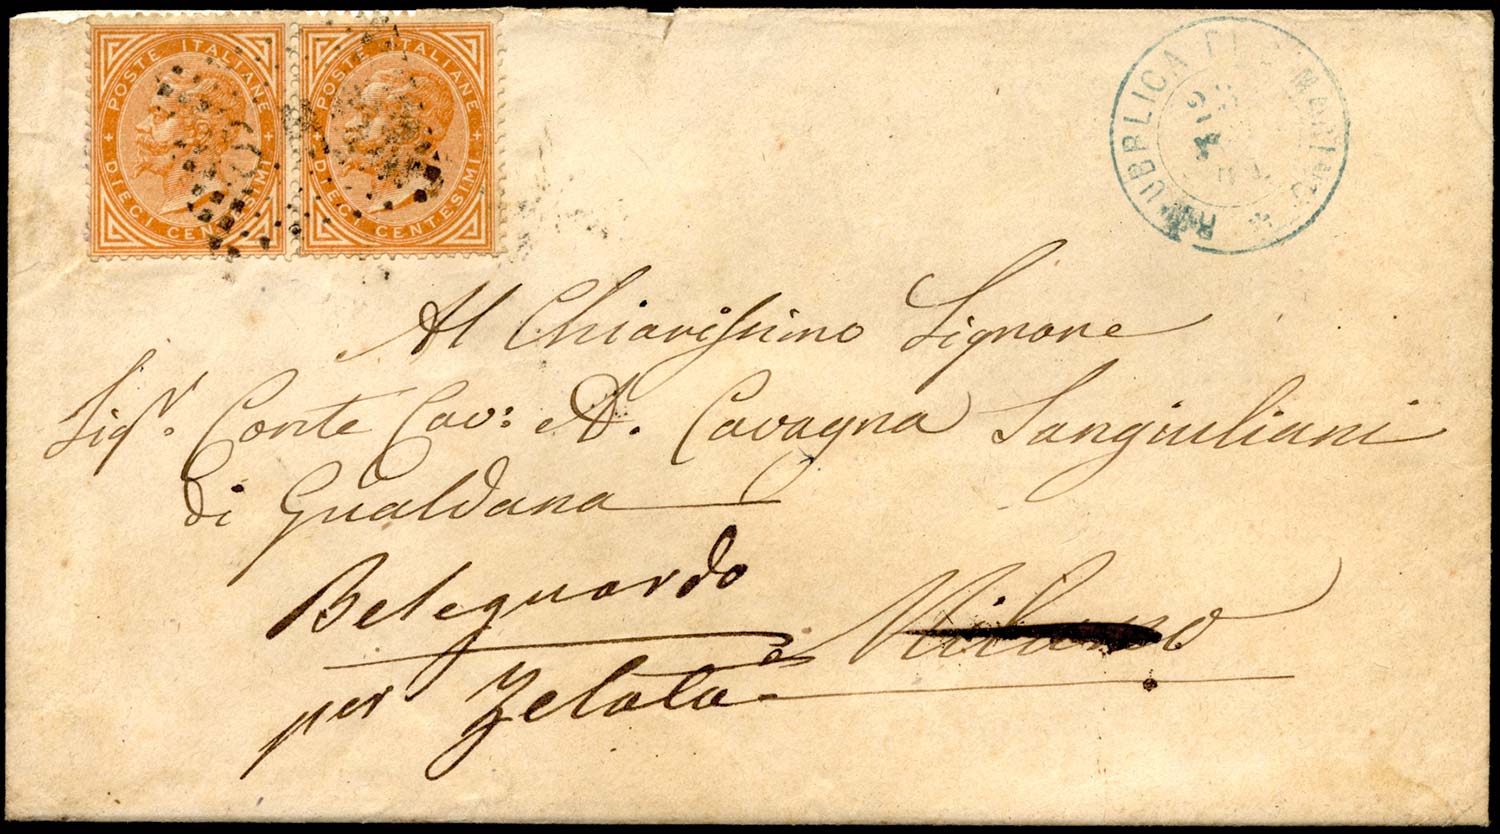 POSTE ITALIANE
DIECI CENTESIMI
POSTE ITALIANE
DIECI CENTESIMI
REPUBBLICA DI S. MARINO
Al Chiarissimo Signore
Sigr. Conte Cav: A. Cavagna Sangiuliani
di Gualdana
Beleguardo
Milano
per Zelata